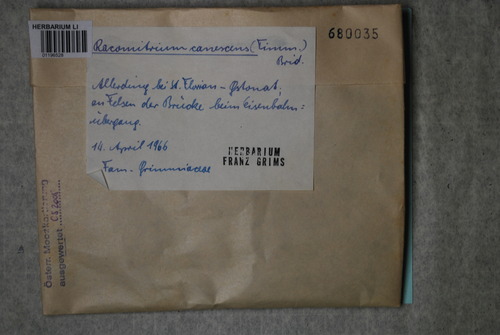 HERBARIUM LI
680035
Racomitrium canescens (Timm.)
Brid.
Allerding bei St. Florian - Ortonat;
an Felsen der Brücke beim Eisenbahn=
übergang
14. April 1966
Fam. Grimmiaceae
HERBARIUM
FRANZ GRIMS
Österr. Mooskartierung
ausgewertet